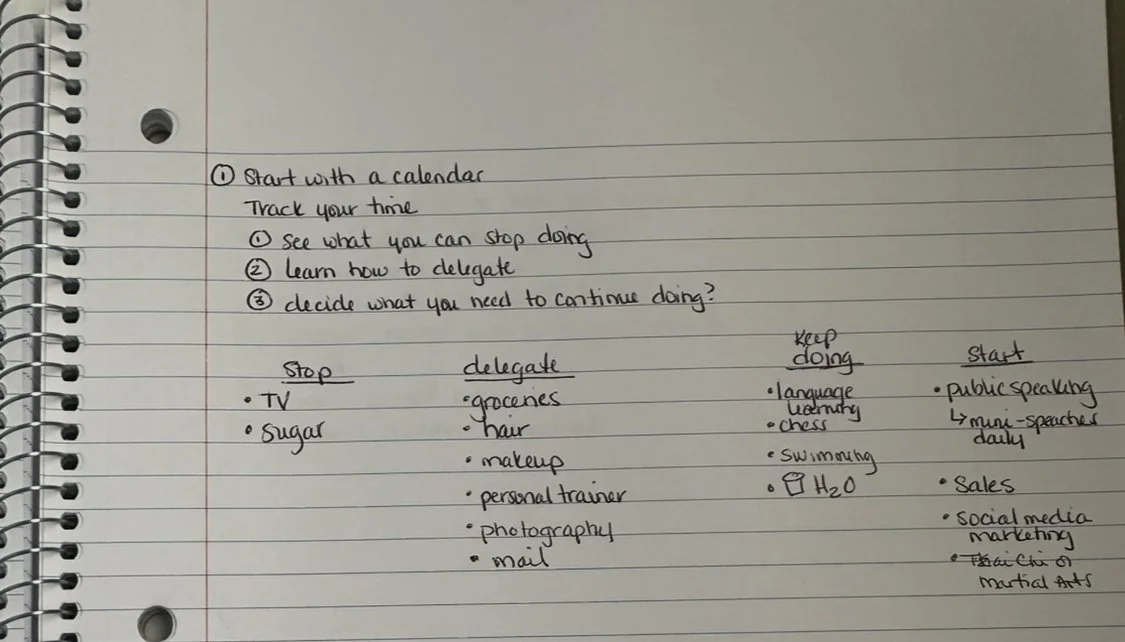 ① Start with a calendar
Track your time
① See what you can stop doing
② learn how to delegate
③ decide what you need to continue doing?
Stop
• TV
• Sugar
delegate
• groceries
• hair
• makeup
• personal trainer
• photography
• mail
Keep
doing
• language
learning
• chess
• swimming
• H₂O
Start
• public speaking
↳ mini-speaches
daily
• Sales
• social media
marketing
• Chi or
Martial Arts